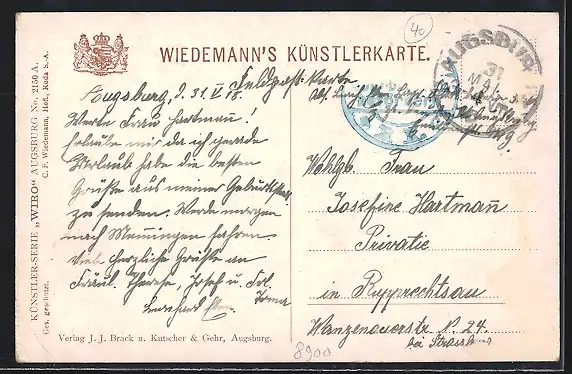 40
WIEDEMANN'S KÜNSTLERKARTE.
AUGSBURG
31 MAI
Feldpost-Karte
Augsburg, d. 31. V. 18.
Werte Frau Hartmann!
Erlaube mir da ich gerade
Urlaub habe die besten
Grüße aus meiner Geburtsstadt
zu senden. Werde morgen
nach Memmingen fahren.
Viele herzliche Grüße an
Fräul. Therese, Josef u. Frl.
Irma
Wohlgb. Frau
Josefine Hartmañ
Privatie
in Rupprechtsau
Wanzenauerstr. N. 24.
bei Strassburg
8900
Verlag J. J. Brack u. Kutscher & Gehr, Augsburg.
KÜNSTLER-SERIE „WIRO" AUGSBURG No. 2150 A.
Ges. geschützt. C. F. Wiedemann, Hofl., Roda S.-A.